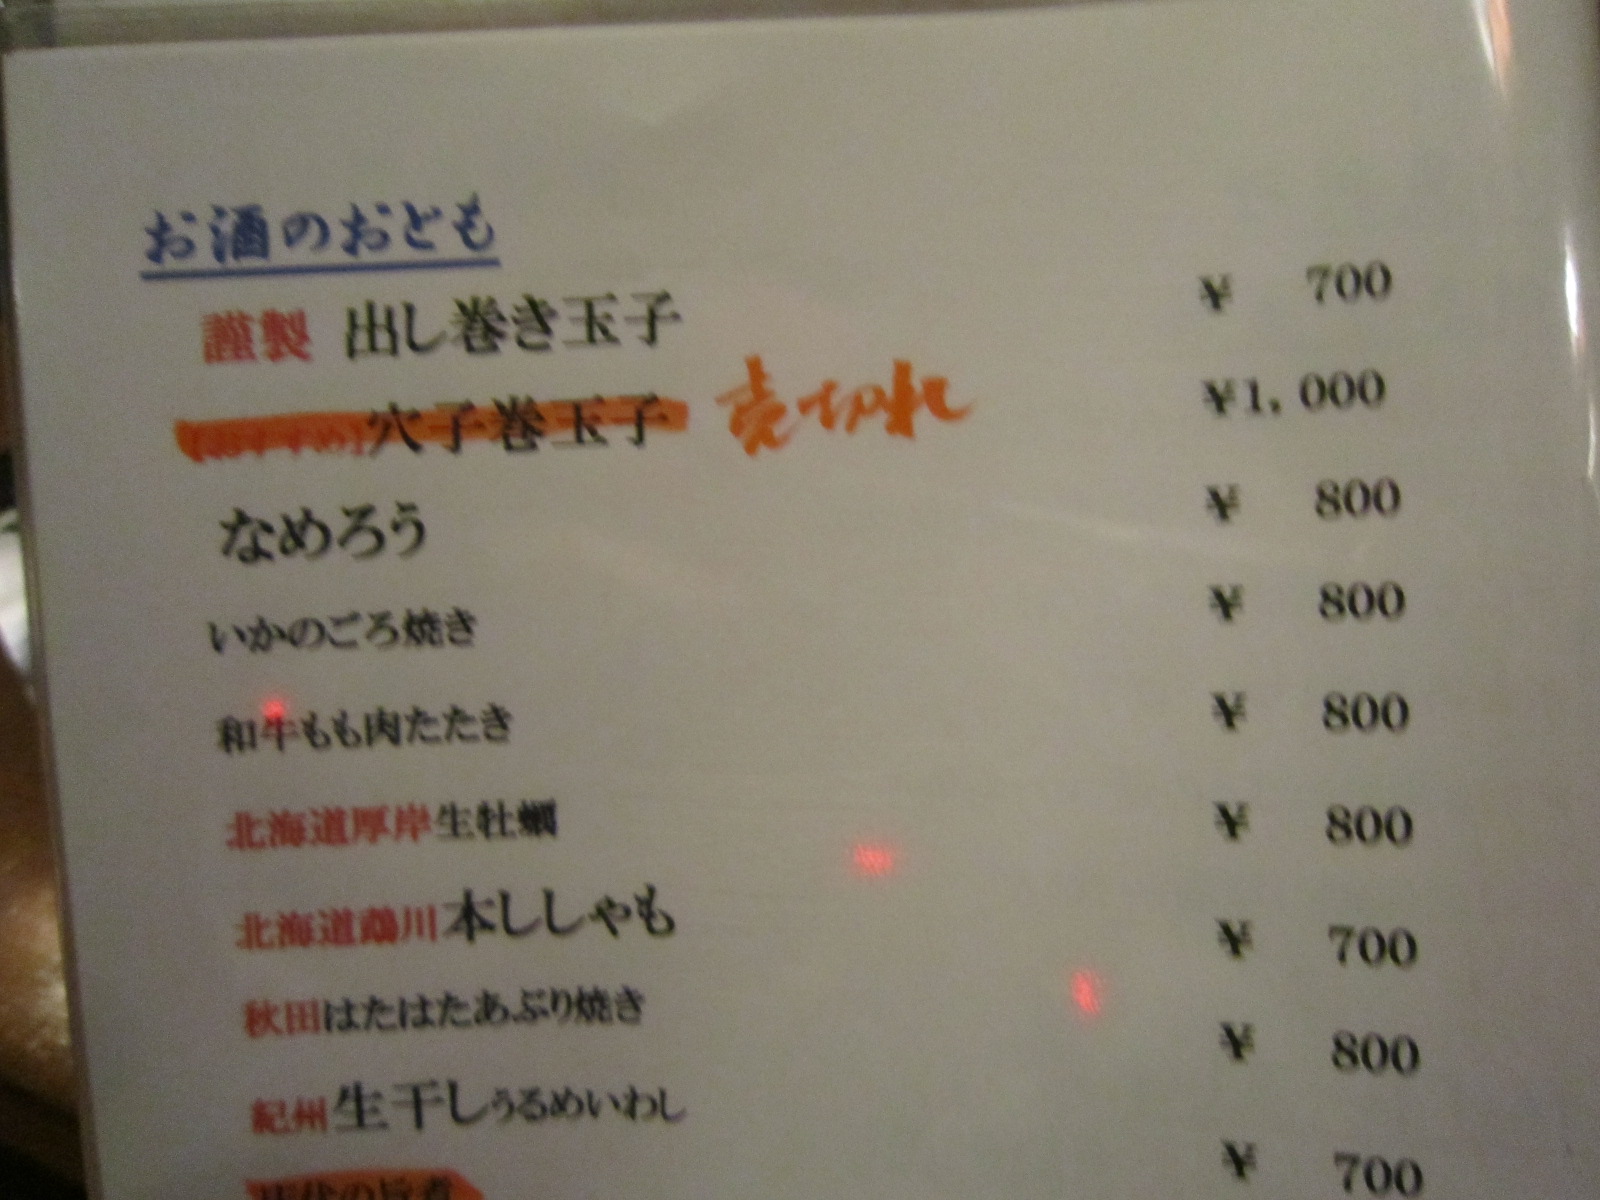 お酒のおども
謹製 出し巻き玉子 ¥ 700
【おすすめ】穴子巻玉子 売切れ ¥1,000
なめろう ¥ 800
いかのごろ焼き ¥ 800
和牛もも肉たたき ¥ 800
北海道厚岸生牡蠣 ¥ 800
北海道鵡川本ししゃも ¥ 700
秋田はたはたあぶり焼き ¥ 800
紀州生干しうるめいわし ¥ 700
の旨煮